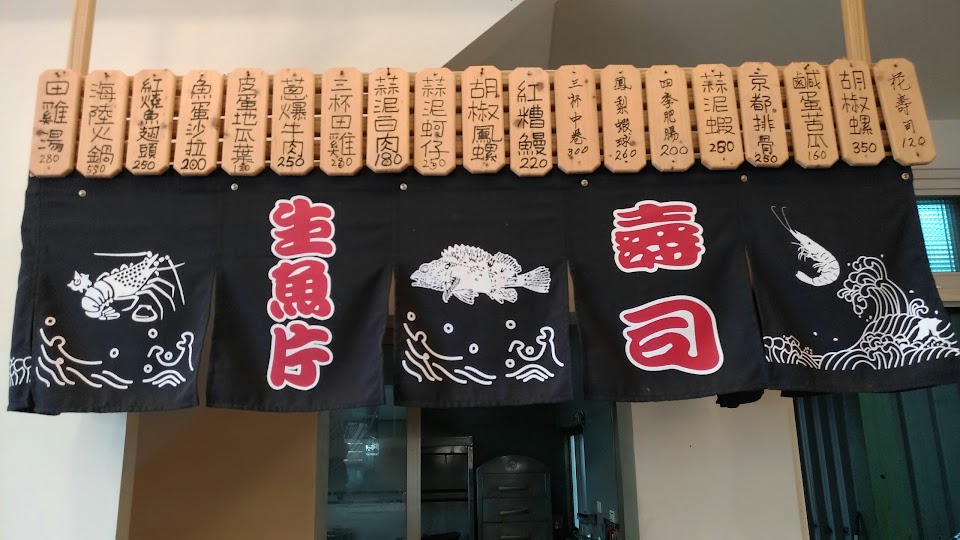 田雞湯 280
海陸火鍋 580
紅燒魚翅頭 250
魚蛋沙拉 200
皮蛋地瓜葉 180
蔥爆牛肉 250
三杯田雞 280
蒜泥白肉 180
蒜泥蚵仔 250
胡椒鳳螺
紅糟鰻 220
三杯中卷 300
鳳梨蝦球 260
四季肥腸 200
蒜泥蝦 280
京都排骨 250
鹹蛋苦瓜 160
胡椒螺 350
花壽司 120
生魚片
壽司